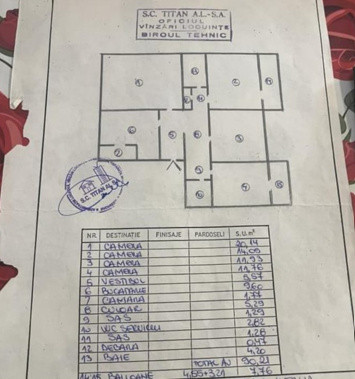 S.C. TITAN A.L.-S.A.
OFICIUL
VÎNZĂRI LOCUINȚE
BIROUL TEHNIC
S.C. TITAN AL SA
NR DESTINAȚIE FINISAJE PARDOSELI S.U.m²
1 CAMERA 20.14
2 CAMERA 14.05
3 CAMERA 11.93
4 CAMERA 11.76
5 VESTIBUL 9.57
6 BUCATARIE 9.60
7 CAMARA 1.77
8 CULOAR 5.29
9 SAS 1.29
10 WC SERVICIU 2.82
11 SAS 1.28
12 DEBARA 0.47
13 BAIE 4.20
TOTAL AN 90.21
14.15 BALCOANE 4.55+3.21 7.76